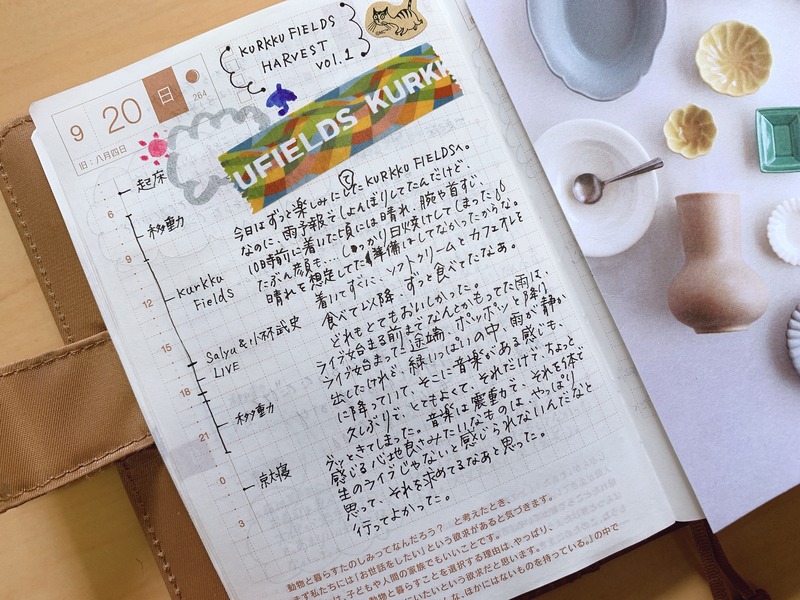 KURKKU FIELDS
HARVEST
vol.1
9 20 日
264
旧:八月四日
UFIELDS KURKK
起床
6
移動
9
Kurkku
Fields
12
15
Salyu & 小林武史
LIVE
18
移動
21
就寝
0
3
今日はずっと楽しみにしてたKURKKU FIELDSへ。
なのに、雨予報でしょんぼりしてたんだけど、
10時前に着いた頃には晴れ、腕や首すじ、
たぶん顔も… しっかり日焼けしてしまった
晴れを想定してた準備はしてなかったからな。
着いてすぐに、ソフトクリームとカフェオレを
食べて以降、ずっと食べてたなあ。
どれもとてもおいしかった。
ライブ始まる前までなんとかもってた雨は、
ライブ始まってた途端、ポッポツッと降り
出したけれど、緑いっぱいの中、雨が静か
に降っていて、そこに音楽がある感じも、
久しぶりで、とてもよくて、それだけで、ちょっと
グッときてしまった。音楽は震動で、それを体で
感じる心地良さみたいなものは、やっぱり
生のライブじゃないと感じられないんだなと
思って、それを求めてるなあと思った。
行ってよかった。
動物と暮らすたのしみってなんだろう? と考えたとき、
まず私たちには「お世話をしたい」という欲求があると気づきます。
は、子どもや人間の家族でもいいことです。
動物と暮らすことを選択する理由は、やっぱり、
にいたいという欲求だと思います。
な、ほかにはないものを持っている。」の中で